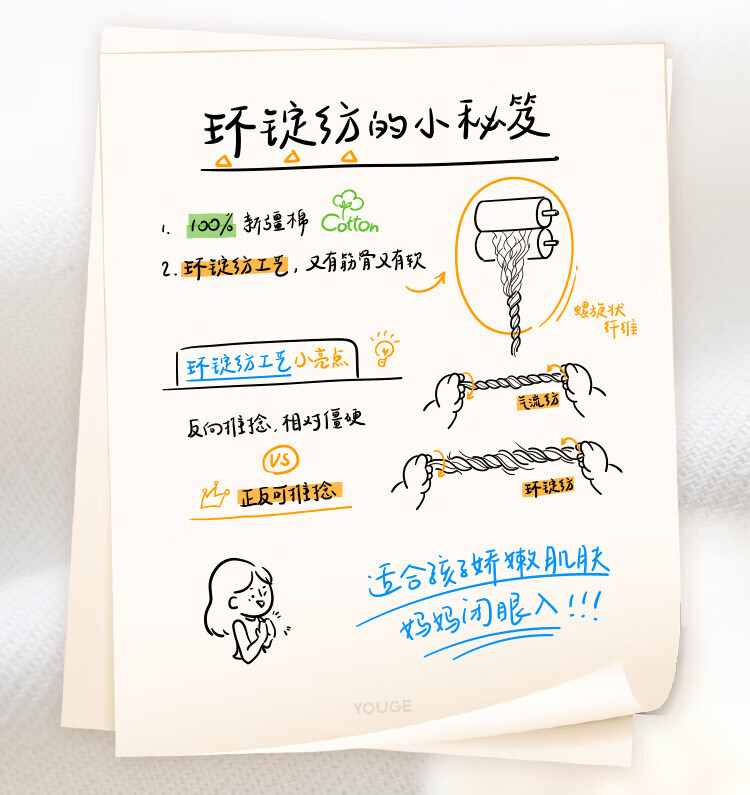 环锭纺的小秘笈
1. 100% 新疆棉 Cotton
2. 环锭纺工艺，又有筋骨又有软
螺旋状
纤维
环锭纺工艺小亮点
气流纺
反向推捻，相对僵硬
VS
正反可推捻
环锭纺
适合孩子娇嫩肌肤
妈妈闭眼入!!!
YOUGE